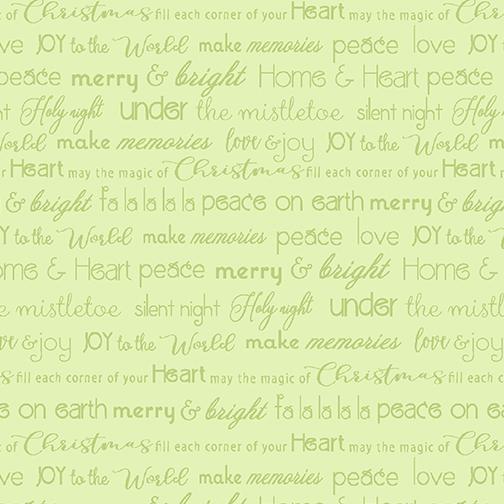 of Christmas fill each corner of your Heart may the magic of Christ
ve JOY to the World make memories peace love JOY to
peace merry & bright Home & Heart peace
ht Holy night under the mistletoe silent night Holy n
World make memories love & joy JOY to the World m
r Heart may the magic of Christmas fill each corner of your Heart m
& bright fa la la la la peace on earth merry & brig
Y to the World make memories peace love JOY to the
ome & Heart peace merry & bright Home &
e mistletoe silent night Holy night under the mist
ve & joy JOY to the World make memories love & joy
s fill each corner of your Heart may the magic of Christmas fill each c
e on earth merry & bright fa la la la la peace on ea
of Christmas fill each corner of your Heart may the magic of Christ
ve JOY to the World make memories peace love JOY to
peace merry & bright Home & Heart peace